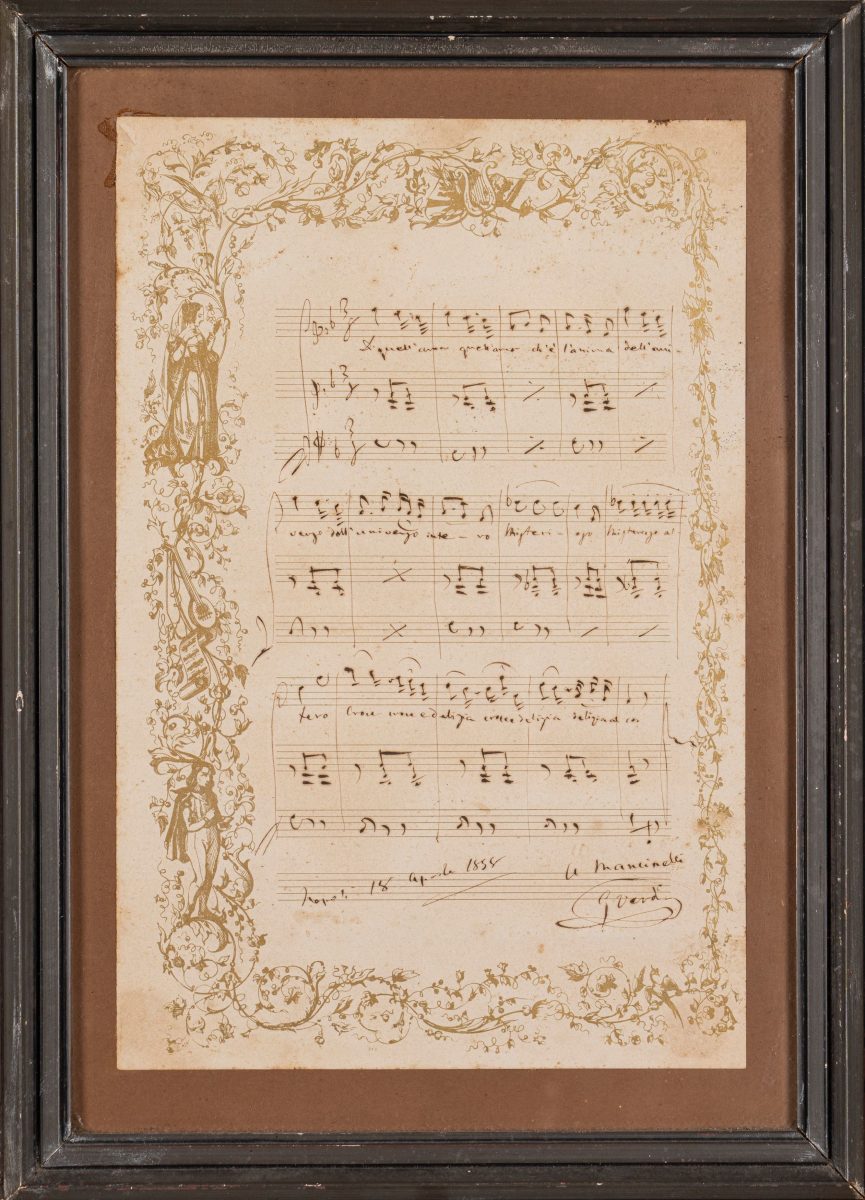 A quell'amor quell'amor ch'è l'anima dell'uni-
verso dell'universo inte - ro Misteri - oso Misterioso al
tero Croce croce e delizia croce e delizia delizia al cor
Napoli 18 Aprile 1858 A Mancinelli
G Verdi